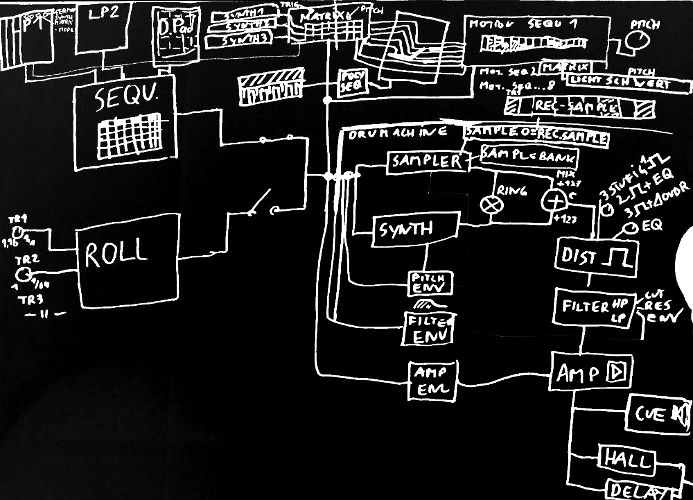 LP2
D.Pad
SYNTH1
SYNTH2
SYNTH3
TRIG
MATRIX
PITCH
MOTION SEQU 1
PITCH
SEQU.
POLY
SEQ
MOT. SEQ 2
MATRIX
PITCH
LICHTSCHWERT
MOT. SEQ...8
REC-SAMPLE
DRUMACHINE
SAMPLE O=REC.SAMPLE
SAMPLER
SAMPLEBANK
RING
MIX
+127
+127
SYNTH
EQ
DIST
TR1
TR2
TR3
— 11 —
ROLL
PITCH
ENV
FILTER
ENV
FILTER HP
LP
CUT
RES
ENV
AMP
ENV
AMP
CUE
HALL
DELAY